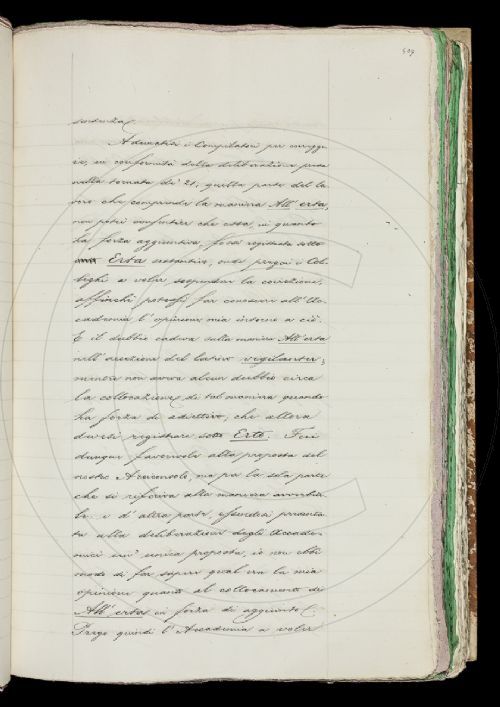 509
sentenza.
Adunatisi i Compilatori per corregge
re, in conformità della deliberazione presa
nella tornata de' 21, quella parte del la
voro che comprende la maniera All' erta,
non potei consentire che essa, in quanto
ha forza aggiuntiva, fosse registrata sotto
Erta sustantivo, onde pregai i Col
leghi a voler sospendere la correzione,
affinché potessi far conoscere all' Ac
cademia l' opinione mia intorno a ciò.
E il dubbio cadeva sulla maniera All' erta
nell' accezione del latino vigilanter;
mentre non aveva alcun dubbio circa
la collocazione di tal maniera quando
ha forza di adiettivo, che allora
dovesse registrare sotto Erto. Feci
dunque favorevole alla proposta del
nostro Arciconsolo, ma per la sola parte
che si riferiva alla maniera avverbia
le: e d' altra parte, essendosi presenta
ta alla deliberazione degli Accade
mici un' unica proposta, io non ebbi
modo di far sapere qual era la mia
opinione quanto al collocamento di
All' erta in forza di aggiunto.
Prego quindi l' Accademia a voler